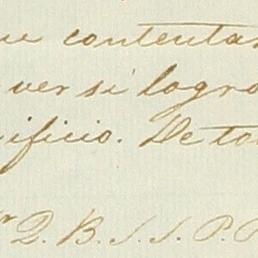 ue contentar
ver si logro
ificio. De to
Q. B. S. S. P. P.